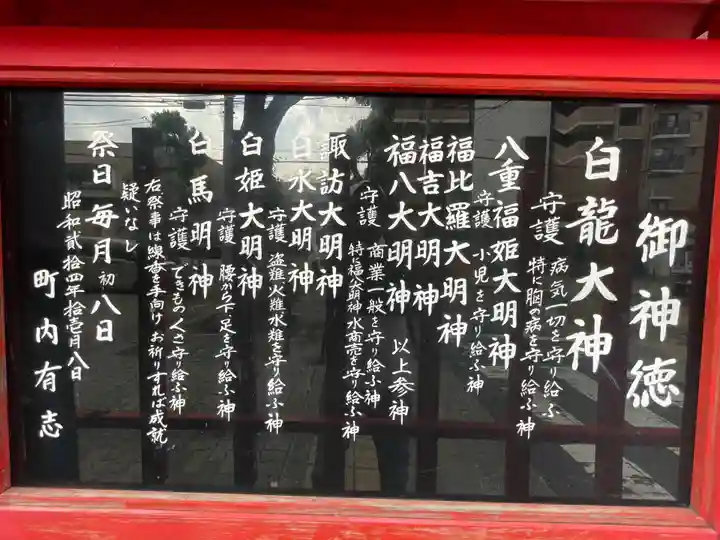 御神徳
白龍大神
守護 病気一切を守り給ふ
特に胸の病を守り給ふ神
八重福姫大明神
守護 小児を守り給ふ神
福比羅大明神
福吉大明神
福八大明神 以上参神
守護 商業一般を守り給ふ神
特に福八大明神水商売を守り給ふ神
諏訪大明神
白水大明神
守護 盗難火難水難を守り給ふ神
白姫大明神
守護 腰から下足を守り給ふ神
白馬明神
守護 できものくさ守り給ふ神
右祭事は線香を手向けお祈りすれば成就
疑いなし
祭日毎月初八日
昭和貳拾四年拾壱月八日
町内有志